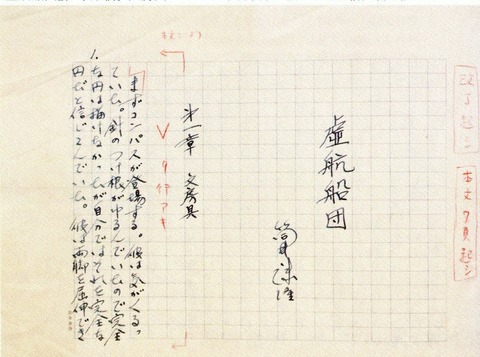 本文7頁起シ
虚航船団
筒井康隆
第一章 文房具
9行アキ
まずコンパスが登場する。彼は気がくるっ
ていた。針のつけ根がゆるんでいたので完全
な円は描けなかったが自分ではそれを完全な
円だと信じこんでいた。彼は両脚を屈伸でき
1.